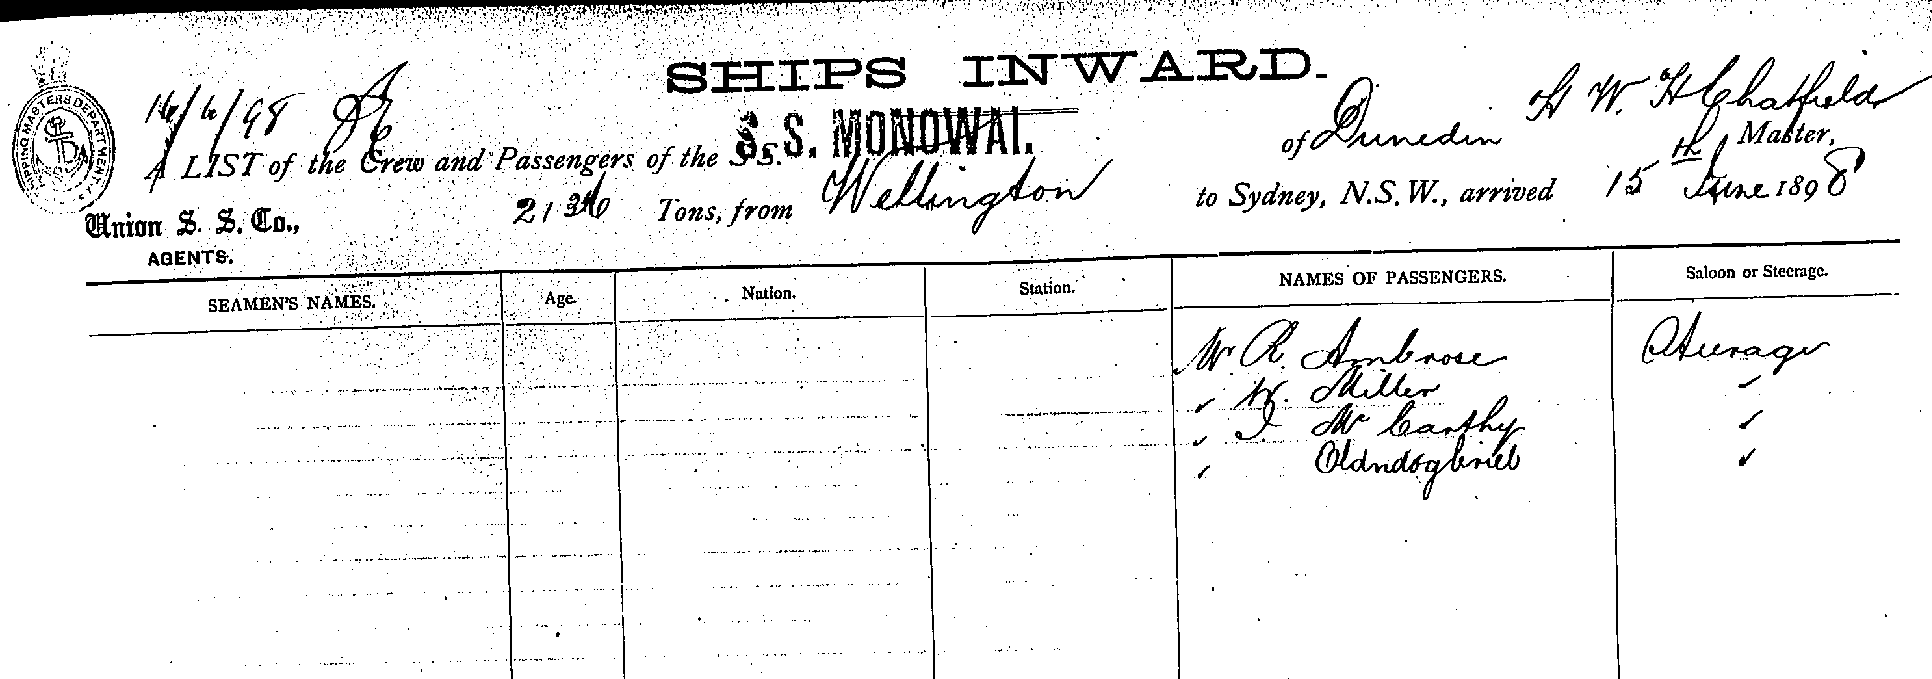 SHIPS INWARD.
16/6/98
S. S. MONOWAI.
H W. H Chatfield
A LIST of the Crew and Passengers of the S.S. of Dunedin Master,
Union S. S. Co., 2136 Tons, from Wellington to Sydney, N.S.W., arrived 15th June 1898
AGENTS.
SHIPPING MASTERS DEPARTMENT
SEAMEN'S NAMES. Age. Nation. Station. NAMES OF PASSENGERS. Saloon or Steerage.
Mr R. Ambrose Steerage
W. Miller
Mc Carthy